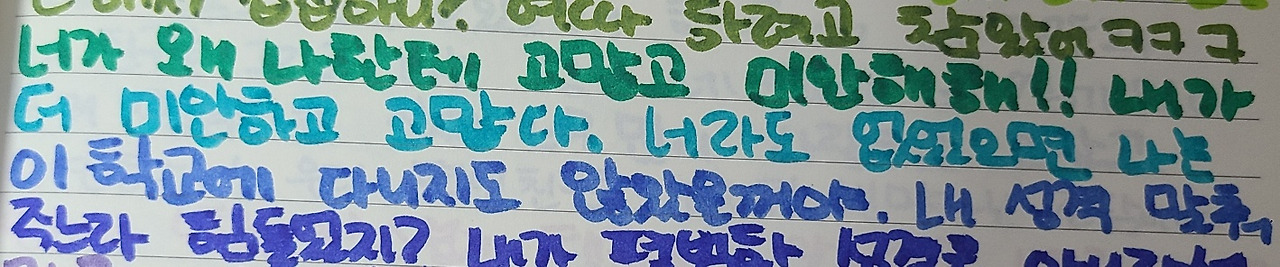 하려고 참았어 ㅋㅋㅋ
너가 왜 나란테 고맙고 미안해해!! 내가
더 미안하고 고맙다. 너라도 없었으면 나는
이 학교에 다니지도 않았을꺼야. 내 성격 맞춰
주느라 힘들었지? 내가 평범한 성격은